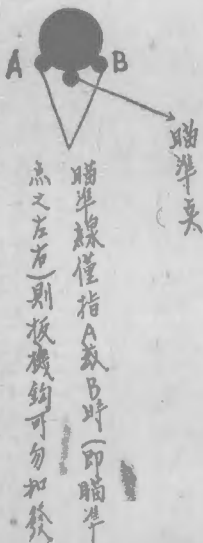 A B
瞄準點
瞄準線僅指A或B時(即瞄準
點之左右)則板機鉤可勿扣發